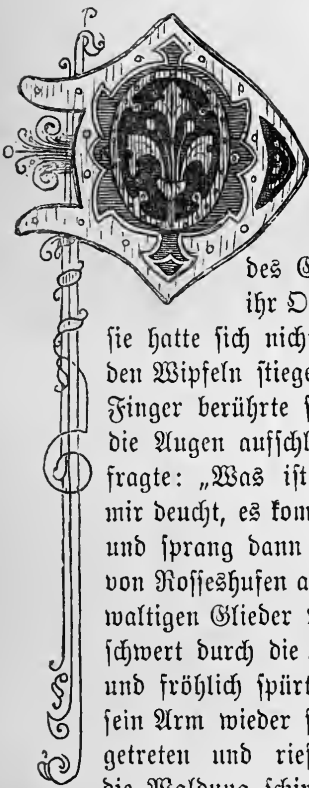 D
des G
ihr O
sie hatte sich nich
den Wipfeln stiege
Finger berührte s
die Augen aufschl
fragte: „Was ist
mir deucht, es kom
und sprang dann
von Rosseshufen a
waltigen Glieder
schwert durch die
und fröhlich spürt
sein Arm wieder s
getreten und rief
die Waldung schim